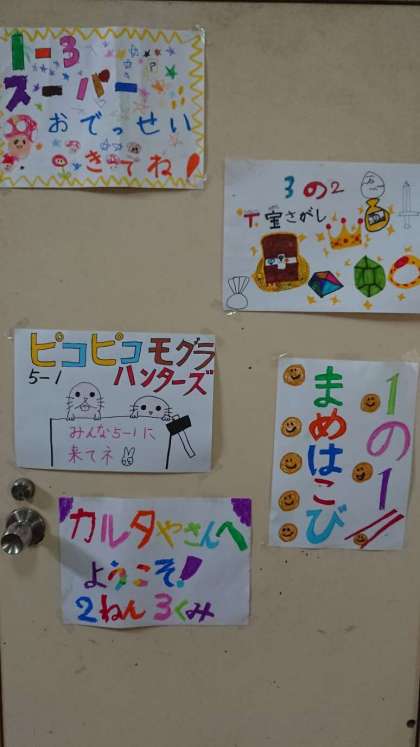 1-3
スーパー
おでっせい
きてね!
3の2
T宝さがし
ピコピコモグラ
5-1 ハンターズ
みんな5-1に
来てネ
1の1!!
まめはこび
カルタやさんへ
ようこそ!
2ねん3くみ